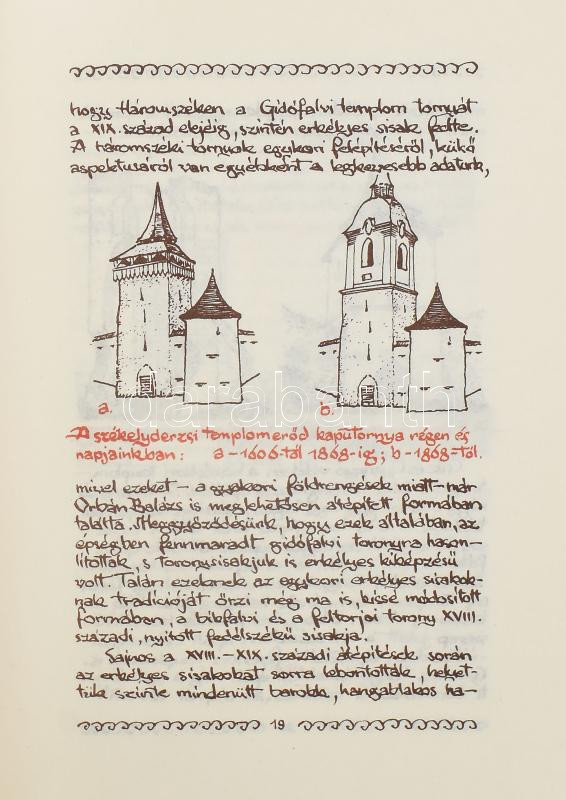 hogy Háromszéken a Gidófalvi templom tornyát
a XIX. század elejéig, szintén erkélyes sisak fedte.
A háromszéki tornyok egykori felépítéséről, külső
aspektusáról van egyébként a legkevesebb adatunk,
a.
b.
darabanth
A székelyderzsi templomerőd kaputornya régen és
napjainkban: a-1606-tól 1868-ig; b-1868-tól.
mivel ezeket - a gyakori földrengések miatt - már
Orbán Balázs is meglehetősen átépített formában
találta. Meggyőződésünk, hogy ezek általában, az
épségben fennmaradt gidófalvi toronyra hason-
lítottak, s toronysisakjuk is erkélyes kiképzésű
volt. Talán ezeknek az egykori erkélyes sisakok-
nak tradícióját őrzi még ma is, kissé módosított
formában, a bikfalvi és a feltorjai torony XVIII.
századi, nyitott fedélszékű sisakja.
Sajnos a XVIII.-XIX. századi átépítések során
az erkélyes sisakokat sorra lebontották, helyet-
tük szinte mindenütt barokk, hangablakos ha-
19